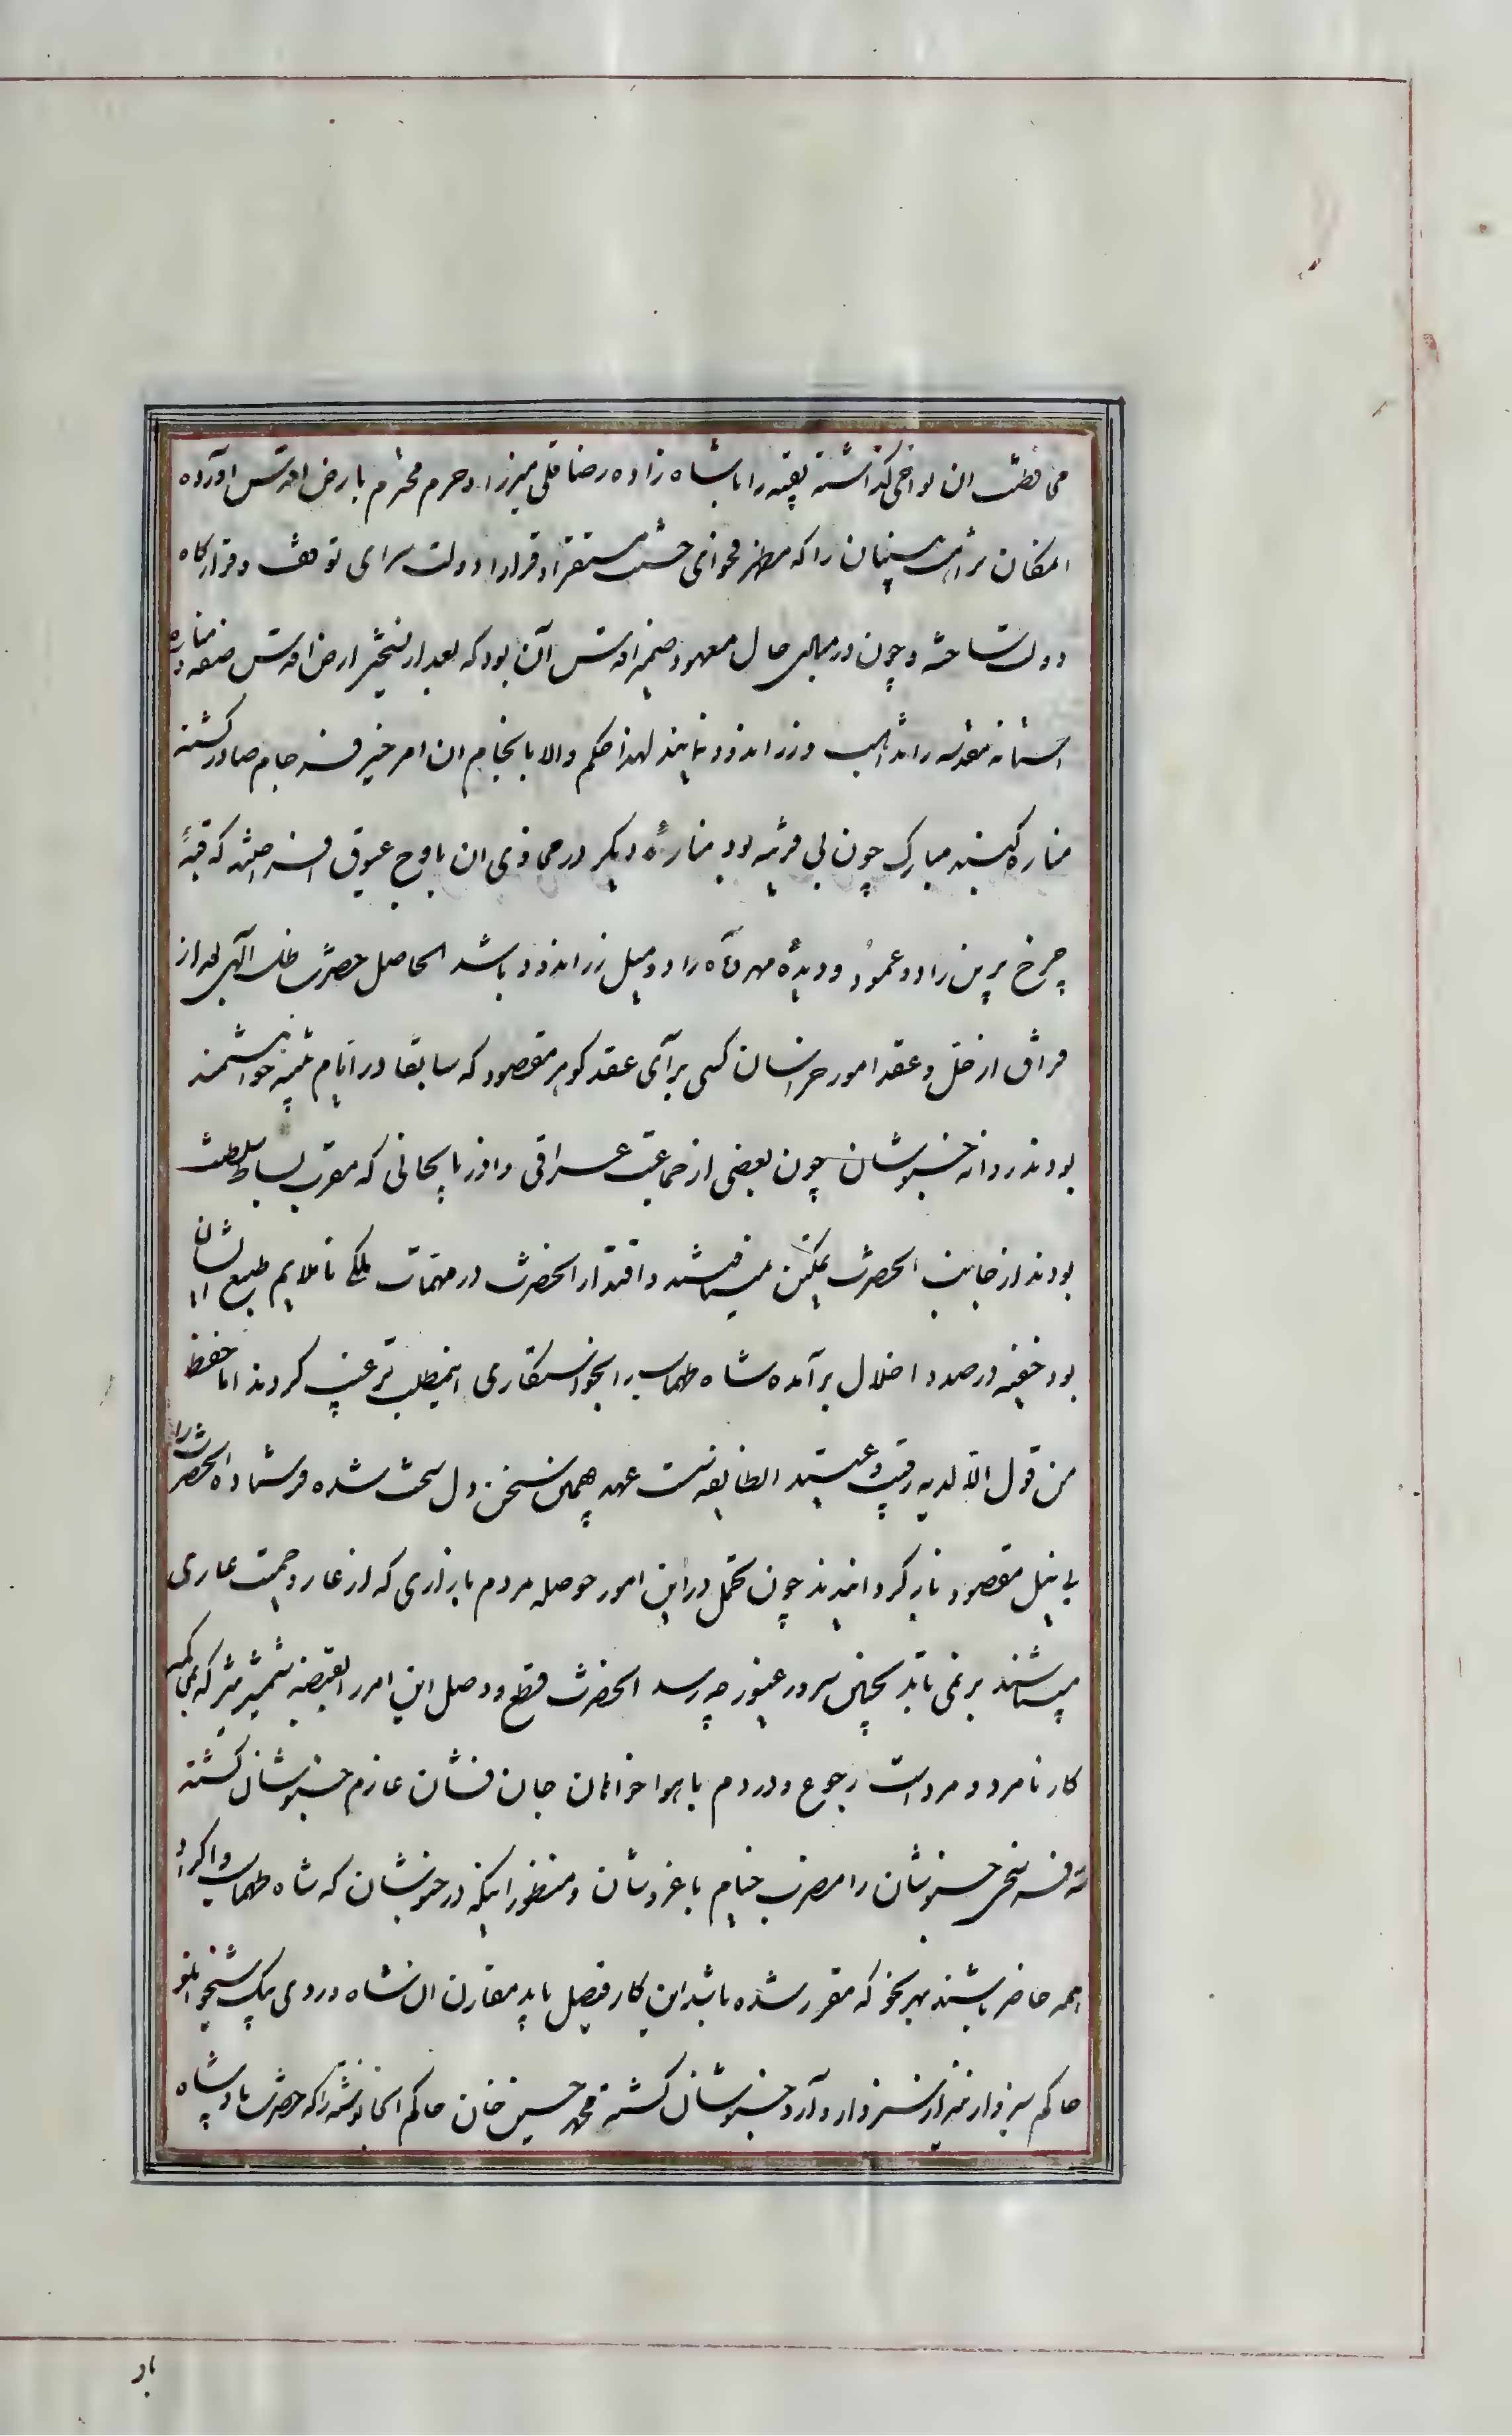 محافظت ان نواحی گذاشته بقیه را با شاه زاده رضا قلی میرزا و حرم محترم بارض اقدس اورده
امکان بران را که مظهر فحوای حسنت مستقرا و قرارا دولت سرای توقف و قرارگاه
دولت ساخته و چون در مبادی حال معهود ضمیر اقدس آن بود که بعد از تسخیر ارض اقدس صفه و مناره
استانه مقدسه را تذهیب و زر اندود نمایند لهذا حکم والا بانجام ان امر خیر فرجام صادر گشته
مناره گنبد مبارک چون بی قرینه بود منارهٔ دیگر در محاذی ان باوج عیوق افراختند که قبهٔ
چرخ برین را دو عمود و دیدهٔ مهر و ماه را دو میل زر اندود باشد الحاصل حضرت ظل الهی بعد از
فراق از حل و عقد امور خراسان کسی برای عقد گوهر مقصود که سابقا در ایام خواهشمند
بودند روانه خبوشان چون بعضی از جماعت عراقی و اذربایجانی که مقرب بساط سلطنت
بودند از جانب انحضرت تمکین نمییافتند و اقتدار انحضرت در مهمات ملکی ناملایم طبع ایشان
بود خفیه در صدد اخلال برآمده شاه طهماسب را بخواستکاری اینمطلب ترغیب کردند اما حفظ
من قول الا لدیه رقیب و عتید انطایفه سست عهد بهمین سخن دل سخت شده فرستاده انحضرت را
بی نیل مقصود باز گردانیدند چون تحمل در این امور حوصله مردم بازاری که از عار و حمیت عاری
میباشند بر نمی تابد بچنین سرور غیور چه رسد انحضرت قطع و وصل این امر را بقبضه شمشیر تیز که
کار نامرد و مردست رجوع و در دم با هوا خواهان جان فشان عازم خبوشان گشته
سه فرسخی خبوشان را مضرب خیام با عز و شان و منظور اینکه در خبوشان که شاه طهماسب و اکراد
همه حاضر باشند بهر نحو که مقرر شده باشد این کار فیصل یابد مقارن ان شاه وردی بیک شیخوانلو
حاکم سبزوار نیز از سبزوار وارد خبوشان گشته محمد حسین خان حاکم انجا نوشته را که حضرت پادشاه
بار